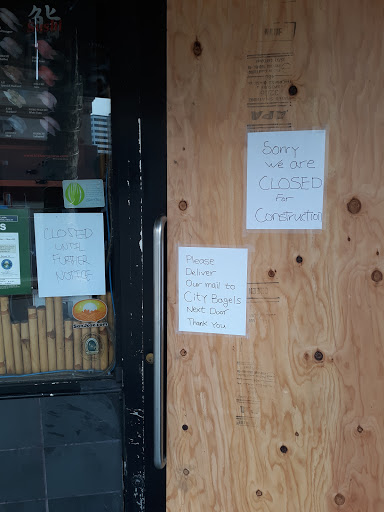 能
sushi
CLOSED
UNTIL
FURTHER
NOTICE
Sorry
we are
CLOSED
for
Construction
Please
Deliver
Our mail to
City Bagels
Next Door
Thank You
APA